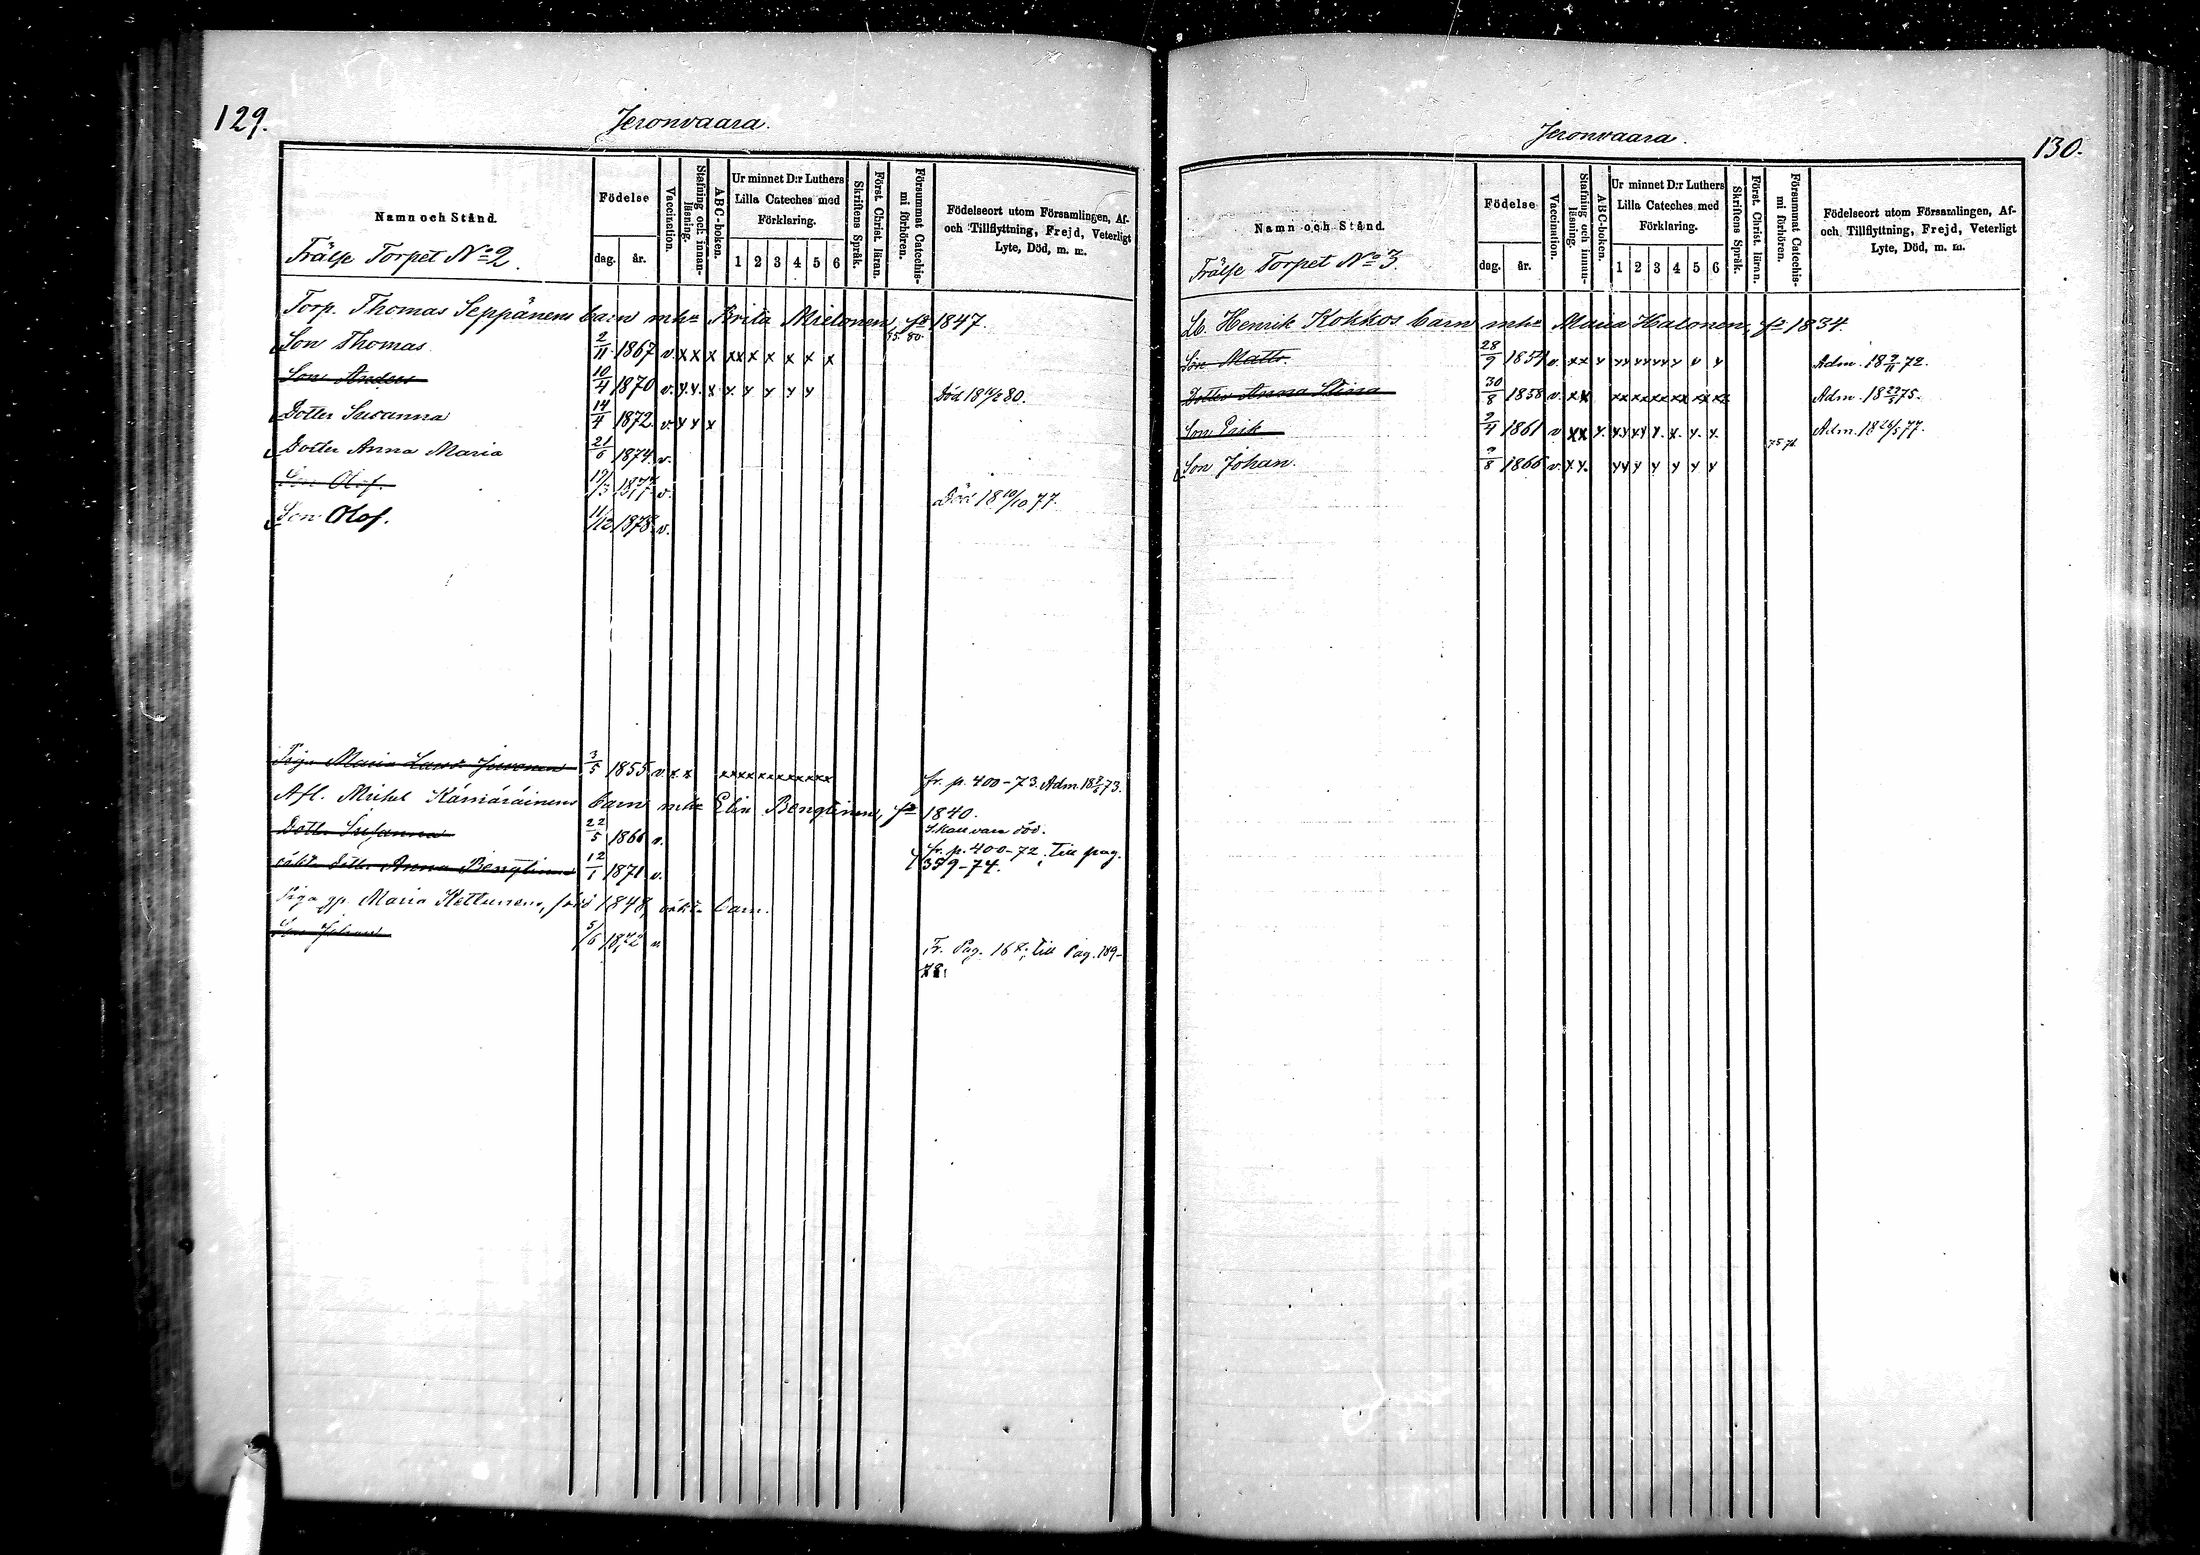 129.
Jeronvaara.
Namn och Stånd.
Födelse
dag. år.
Vaccination.
Stafning och innan-läsning.
ABC-boken.
Ur minnet D:r Luthers
Lilla Cateches med
Förklaring.
1 2 3 4 5 6
Skriftens Språk.
Först. Christ. läran.
Försummat Catechis-mi förhören.
Födelseort utom Församlingen, Af-
och Tillflyttning, Frejd, Veterligt
Lyte, Död, m. m.
Frälse Torpet No 2.
Torp. Thomas Seppänens barn mhu Brita Mielonen, fd 1847.
Son Thomas 2/11 1867 v. x x x xx x x x x x
Son Anders 10/4 1870 v. x x x x x x x x Död 18 80.
Dotter Susanna 14/4 1872. v. x x x
Dotter Anna Maria 21/6 1874. v.
Son Olof. 1877 v. Död 18 10/10 77.
Son Olof. 11/12 1878. v.
Piga Maria Lars d. 3/5 1855 v. x x xxxxxxxxxxx fr. p. 400-73. Adm. 18 73.
Afl. Mickel Kämäräinens barn mhu Elin Bengtinen, fd 1840.
Dotter Susanna 22/5 1866 v. Skall vara död.
oäkta dottr. Anna Bengtinen 12/1 1871 v. fr. p. 400-72. till pag.
359-74.
Piga gp. Maria Kettunens, född 1848, oäkta barn.
Son Johan 5/6 1872 v Fr. Pag. till Pag. 189-
78.
130.
Jeronvaara.
Namn och Stånd.
Födelse
dag. år.
Vaccination.
Stafning och innan-läsning.
ABC-boken.
Ur minnet D:r Luthers
Lilla Cateches med
Förklaring.
1 2 3 4 5 6
Skriftens Språk.
Först. Christ. läran
Försummat Catechis-mi förhören.
Födelseort utom Församlingen, Af-
och Tillflyttning, Frejd, Veterligt
Lyte, Död, m. m.
Frälse Torpet No 3.
Lb. Henrik Kokkos barn mhu Maria Halonen, fd 1834
Son Matts. 28/9 1854 v. x x x xxxxxx x x x Adm. 18 72.
Dotter Anna Stina 30/8 1858 v. x x xxxxxxxxxx Adm. 18 75.
Son Erik 2/4 1861 v x x x. xxxx x. x. x. x. Adm. 18 77.
Son Johan. 1866 v. x x. xxx x x x x